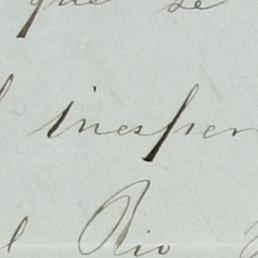 que se
inesper
Rio